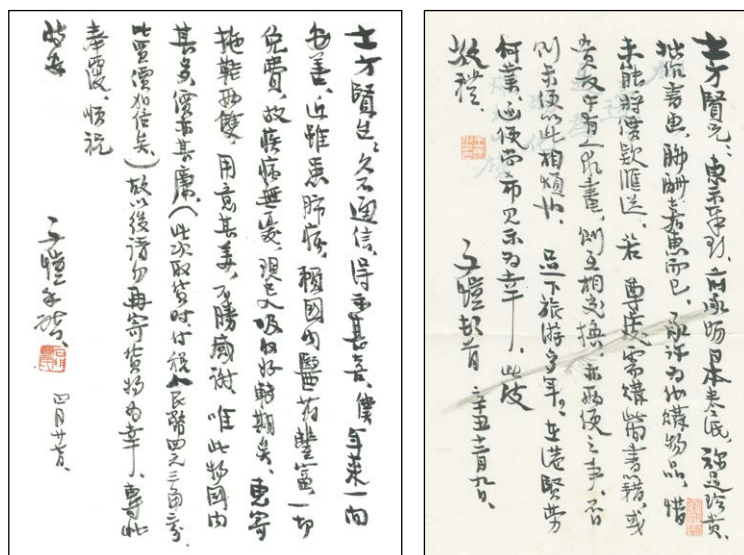 士方賢生:久不通信,得示甚喜,僕年来一向
安善,近雖患肺病,賴國内醫药豐富,一切
免費,故疾病無憂,現已入吸收好轉期矣。惠寄
拖鞋兩雙,用意甚美,不勝感谢,唯此物國内
甚多,價亦甚廉,(此次取貨時,付税人民幣四元三角二分,
比買價加倍矣)故以後請勿再寄貨物為幸,專此
奉覆,順祝
時安
子愷
四月廿
士方賢兄:惠示奉到,前承 日本 ,弥足珍贵,
拙作書画,聊酬嘉惠而已,承許为 購物品,惜
未能將價款匯送,若 尊處需購此間書籍,或
貴友中有人求畫,則互相交换,亦兩便之事,否
則未便以此相煩也, 足下旅游多年,在港賢劳
何業,函便尚希見示为幸,此致
敬禮
子愷頓首 辛丑十二月九日